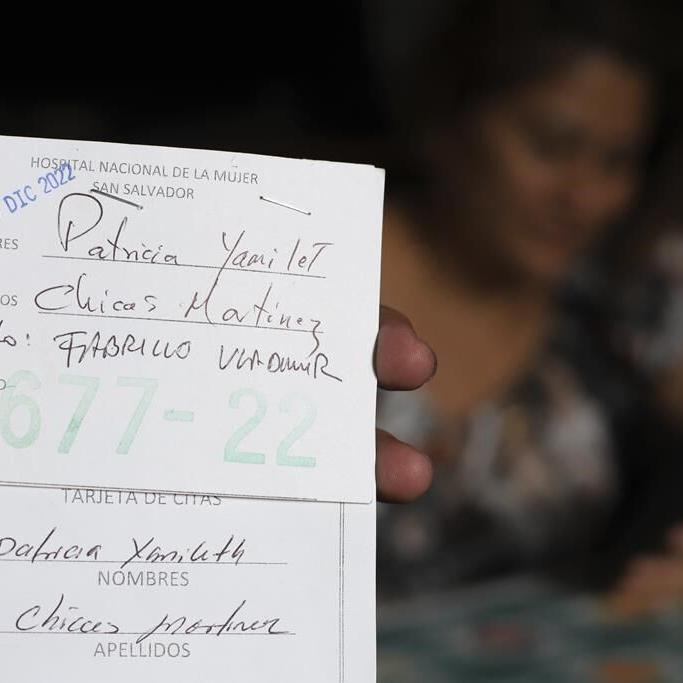 HOSPITAL NACIONAL DE LA MUJER
SAN SALVADOR
DIC 2022
RES Patricia Yamilet
OS Chicas Martinez
lo: FABRICIO VLADIMIR
677-22
TARJETA DE CITAS
Patricia Yamileth
NOMBRES
Chicas Martinez
APELLIDOS